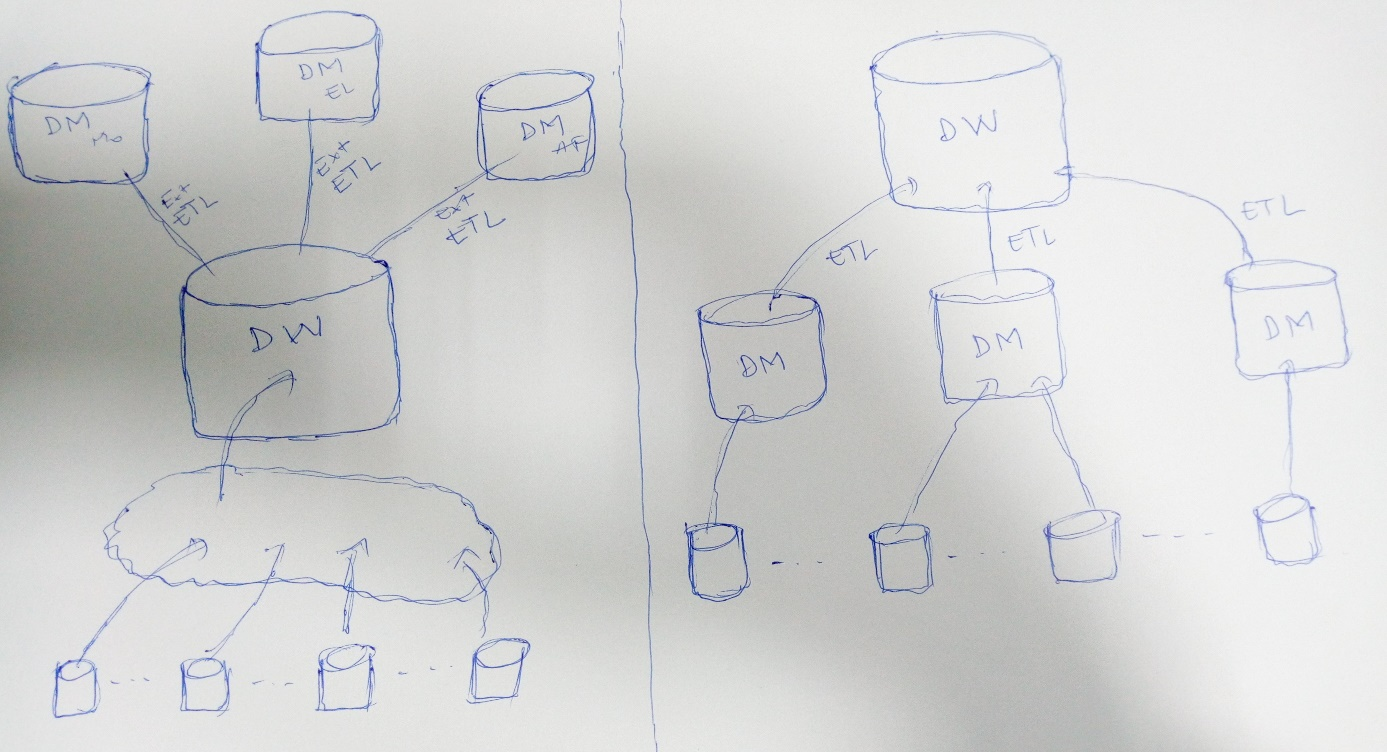 DM
EL
DM
Mo
DM
AF
Ext
ETL
Ext
ETL
Ext
ETL
DW
DW
ETL
ETL
ETL
DM
DM
DM